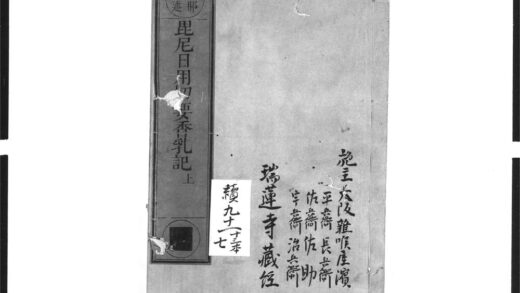 毘尼日用切要香乳記 上
施主大阪雜喉屋濱
平齋長兵衛
佐齋佐助
平齋治兵衛
瑞蓮寺藏經
續九十二十本
七